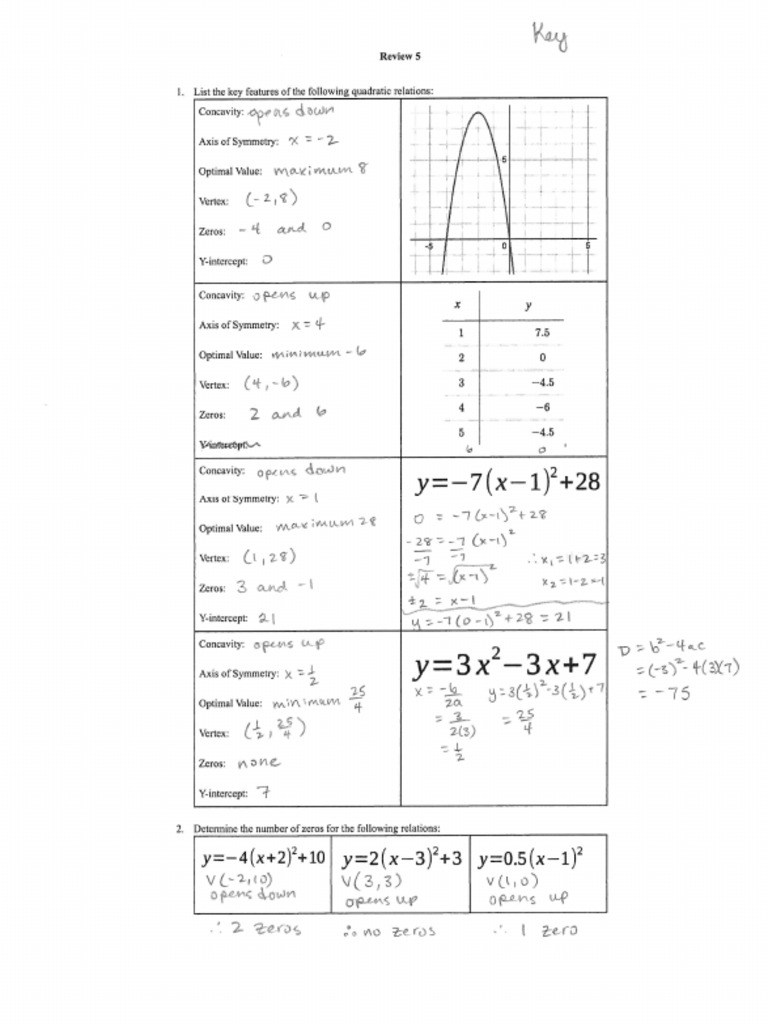 Key
Review 5
1. List the key features of the following quadratic relations:
Concavity: opens down
Axis of Symmetry: x = -2
Optimal Value: maximum 8
Vertex: (-2,8)
Zeros: -4 and 0
Y-intercept: 0
5
-5 0 5
Concavity: opens up
Axis of Symmetry: x = 4
Optimal Value: minimum -6
Vertex: (4,-6)
Zeros: 2 and 6
Y-intercept:
x y
1 7.5
2 0
3 -4.5
4 -6
5 -4.5
6 0
Concavity: opens down
Axis of Symmetry: x = 1
Optimal Value: maximum 28
Vertex: (1,28)
Zeros: 3 and -1
Y-intercept: 21
y=−7(x−1)²+28
0 = -7(x-1)²+28
-28 = -7 (x-1)²
-7 -7
=√4 = √(x-1)²
±2 = x-1
∴ x₁ = 1+2=3
x₂ = 1-2=-1
y = -7(0-1)²+28 = 21
Concavity: opens up
Axis of Symmetry: x = 1/2
Optimal Value: minimum 25/4
Vertex: (1/2, 25/4)
Zeros: none
Y-intercept: 7
y=3x²−3x+7
x = -b/2a
= 3/2(3)
= 1/2
y = 3(1/2)²-3(1/2)+7
= 25/4
D = b²-4ac
= (-3)²-4(3)(7)
= -75
2. Determine the number of zeros for the following relations:
y=−4(x+2)²+10 y=2(x−3)²+3 y=0.5(x−1)²
V(-2,10) V(3,3) V(1,0)
opens down opens up opens up
∴ 2 zeros ∴ no zeros ∴ 1 zero